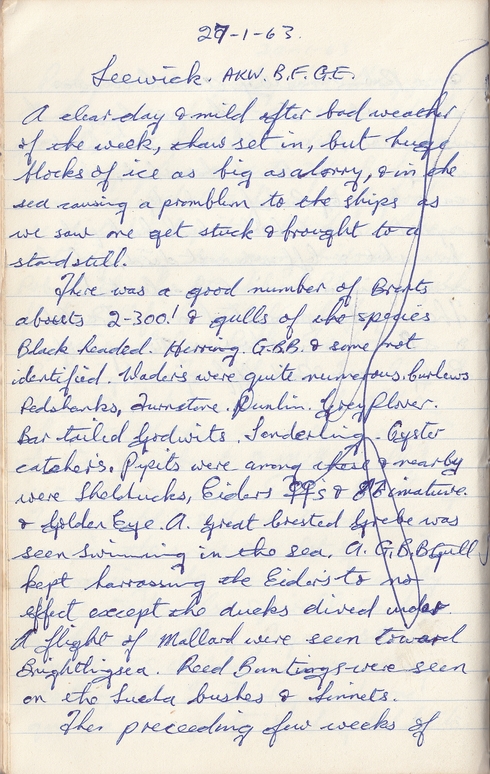 27-1-63.
Leewick. AKW. B.F. G.E.
A clear day & mild after bad weather
of the week, thaw set in, but huge
blocks of ice as big as a lorry, & in the
sea causing a promblem to the ships as
we saw one get stuck & brought to a
standstill.
There was a good number of Brents
abouts 2-300! & gulls of species
Black headed. Herring. G.B.B. & some not
identified. Waders were quite numerous. Curlews
Redshanks, Turnstone. Dunlin. Grey Plover.
Bar tailed Godwits. Sanderling. Oyster
catchers. Pipits were among these & nearby
were Shelducks, Eiders ♀♀'s & imature.
& Golden Eye. A. Great Crested Grebe was
seen swimming in the sea. A. G.B.B Gull
kept harrassing the Eiders to no
effect except the ducks dived under.
A flight of Mallard were seen toward
Brightlingsea. Reed Buntings were seen
on the Sueda bushes & Linnets.
The preceeding few weeks of